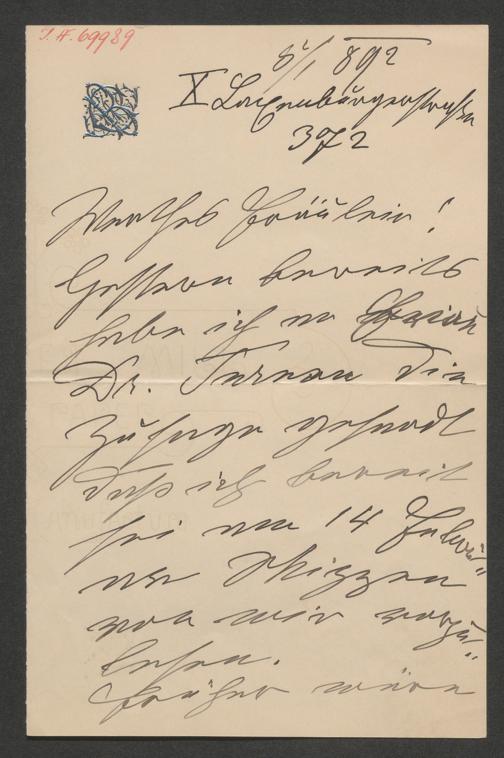 I.N. 69989
8/I 892
X Laxenburgerstraße
372
Werthes Fräulein!
Gestern bereits
habe ich an
Dr. Turnau die
Zusage gesandt
daß ich bereit
sei am 14 Febru¨
ar Skizzen
von mir vorzu¨
lesen.
Früher wäre